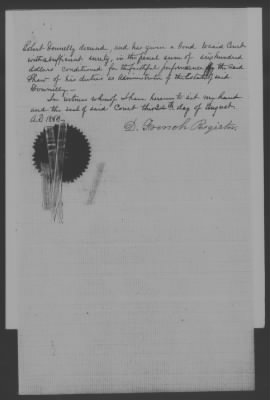 Robert Donnelly deceased, and has given a bond to said Court
with sufficient surety, in the penal sum of six hundred
dollars conditioned for the faithful performance by the said
Shaw of his duties as Administrator of the Estate of said
Donnelly.—
In witness whereof I have hereunto set my hand
and the seal of said Court this 26th day of August
A.D. 1868.
D. French Register.